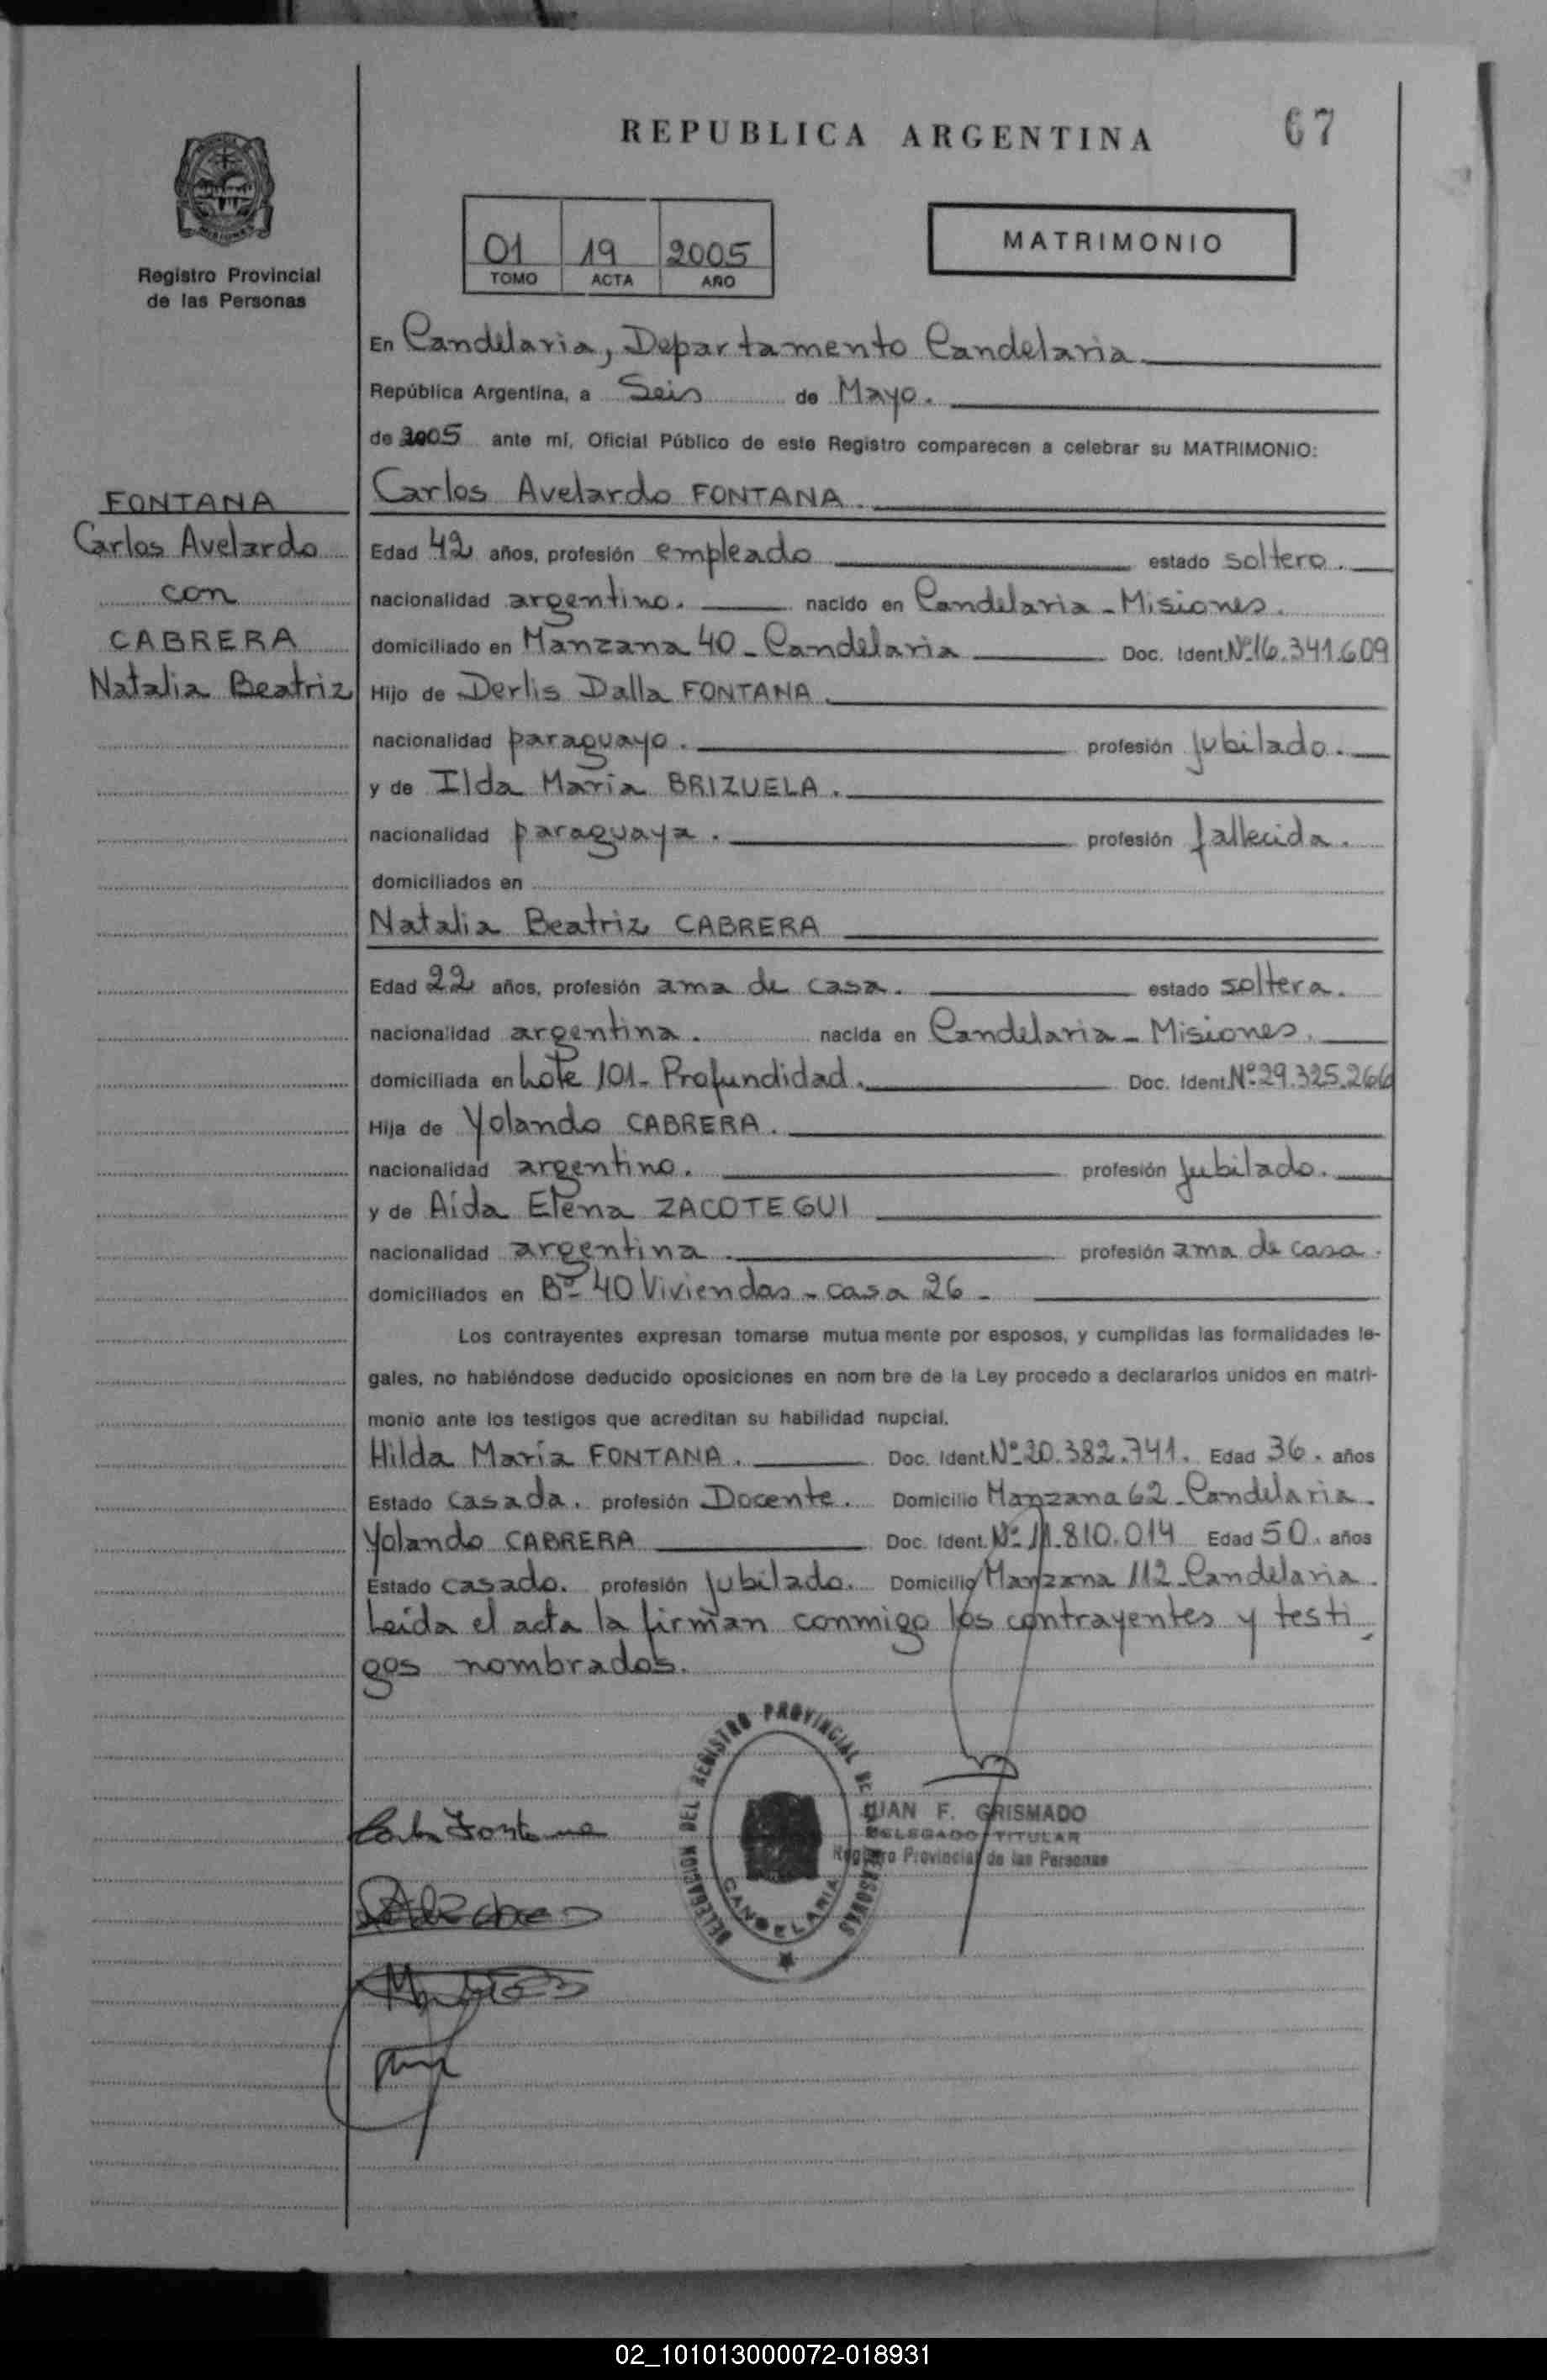 REPUBLICA ARGENTINA
67
Registro Provincial
de las Personas
01 19 2005
TOMO ACTA AÑO
MATRIMONIO
En Candelaria, Departamento Candelaria
República Argentina, a Seis de Mayo.
de 2005 ante mí, Oficial Público de este Registro comparecen a celebrar su MATRIMONIO:
FONTANA
Carlos Avelardo
con
CABRERA
Natalia Beatriz
Carlos Avelardo FONTANA.
Edad 42 años, profesión empleado estado soltero.
nacionalidad argentino. nacido en Candelaria - Misiones.
domiciliado en Manzana 40 - Candelaria Doc. Ident. Nº 16.341.609
Hijo de Derlis Dalla FONTANA.
nacionalidad paraguayo. profesión jubilado.
y de Ilda María BRIZUELA.
nacionalidad paraguaya. profesión fallecida.
domiciliados en
Natalia Beatriz CABRERA
Edad 22 años, profesión ama de casa. estado soltera.
nacionalidad argentina. nacida en Candelaria - Misiones.
domiciliada en Lote 101 - Profundidad. Doc. Ident. Nº 29.325.266
Hija de Yolando CABRERA.
nacionalidad argentino. profesión jubilado.
y de Aída Elena ZACOTEGUI
nacionalidad argentina profesión ama de casa.
domiciliados en Bº 40 Viviendas - casa 26 -
Los contrayentes expresan tomarse mutua mente por esposos, y cumplidas las formalidades le-
gales, no habiéndose deducido oposiciones en nom bre de la Ley procedo a declararlos unidos en matri-
monio ante los testigos que acreditan su habilidad nupcial.
Hilda María FONTANA. Doc. Ident. Nº 20.382.741. Edad 36. años
Estado casada. profesión Docente. Domicilio Manzana 62 - Candelaria.
Yolando CABRERA Doc. Ident. Nº 11.810.014 Edad 50. años
Estado casado. profesión jubilado. Domicilio Manzana 112 - Candelaria.
Leída el acta la firman conmigo los contrayentes y testi
gos nombrados.
DELEGACION DEL REGISTRO PROVINCIAL DE LAS PERSONAS
CANDELARIA
JUAN F. GRISMADO
DELEGADO TITULAR
Registro Provincial de las Personas
02_101013000072-018931